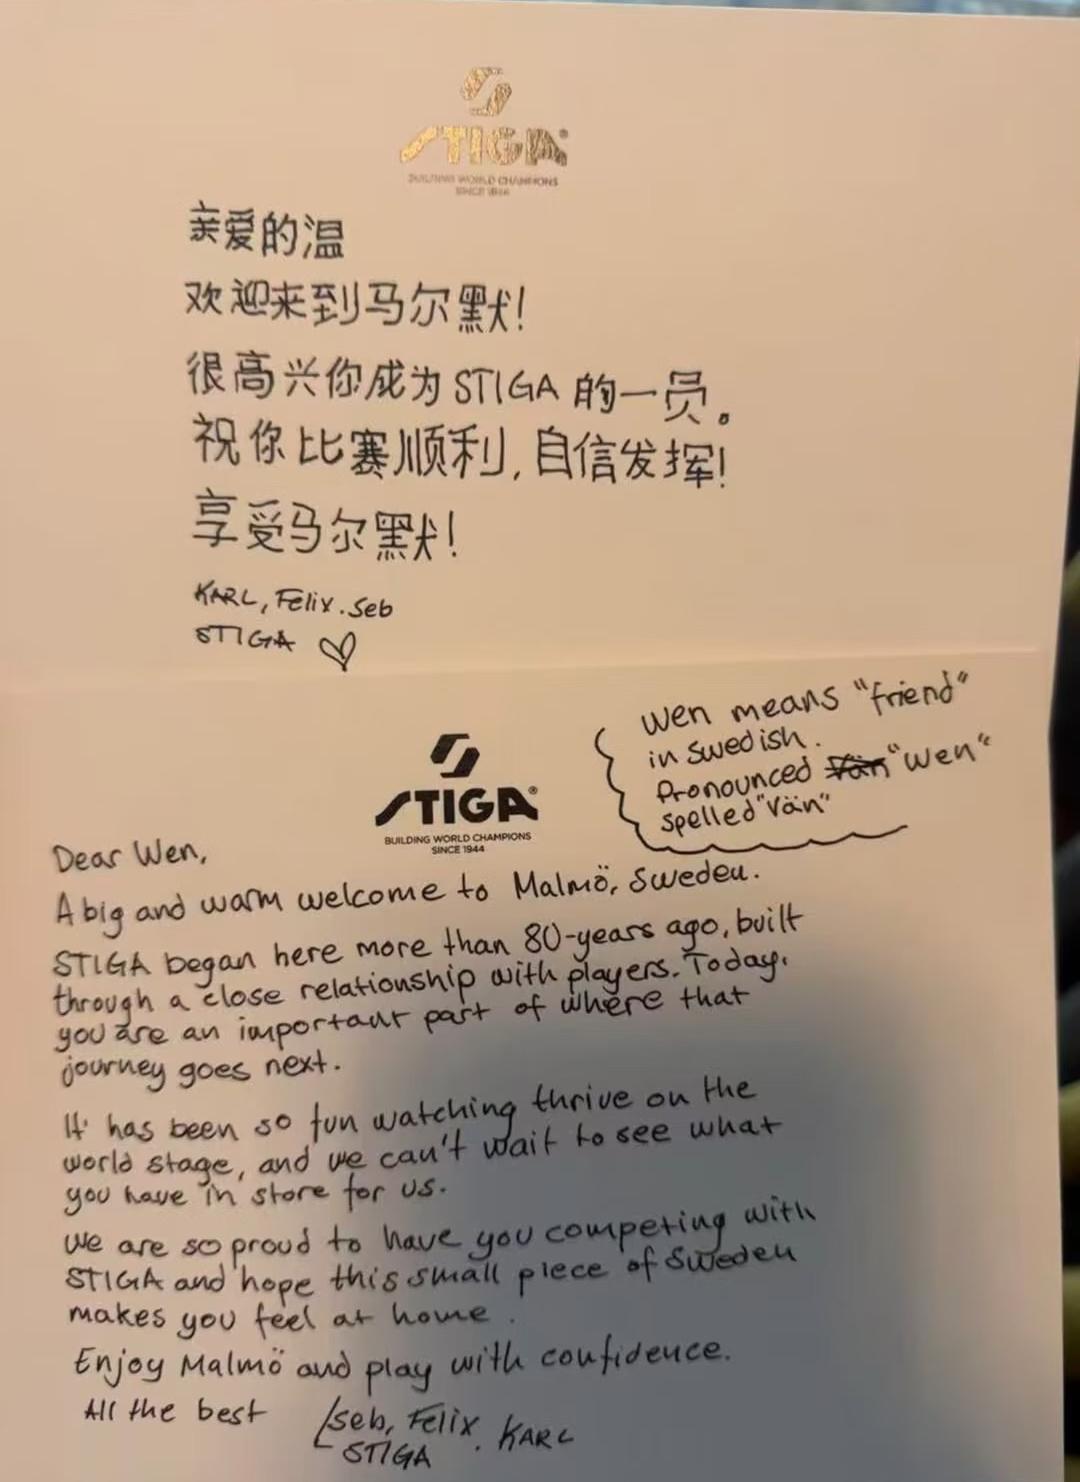 STIGA®
BUILDING WORLD CHAMPIONS
SINCE 1944
亲爱的温
欢迎来到马尔默!
很高兴你成为 STIGA 的一员。
祝你比赛顺利,自信发挥!
享受马尔默!
KARL, Felix. Seb
STIGA ♡
STIGA®
BUILDING WORLD CHAMPIONS
SINCE 1944
Wen means "friend"
in Swedish.
Pronounced Vän "Wen"
spelled "Vän"
Dear Wen,
A big and warm welcome to Malmö, Sweden.
STIGA began here more than 80-years ago, built
through a close relationship with players. Today,
you are an important part of where that
journey goes next.
It has been so fun watching thrive on the
world stage, and we can't wait to see what
you have in store for us.
We are so proud to have you competing with
STIGA and hope this small piece of Sweden
makes you feel at home.
Enjoy Malmö and play with confidence.
All the best
Seb, Felix. KARL
STIGA